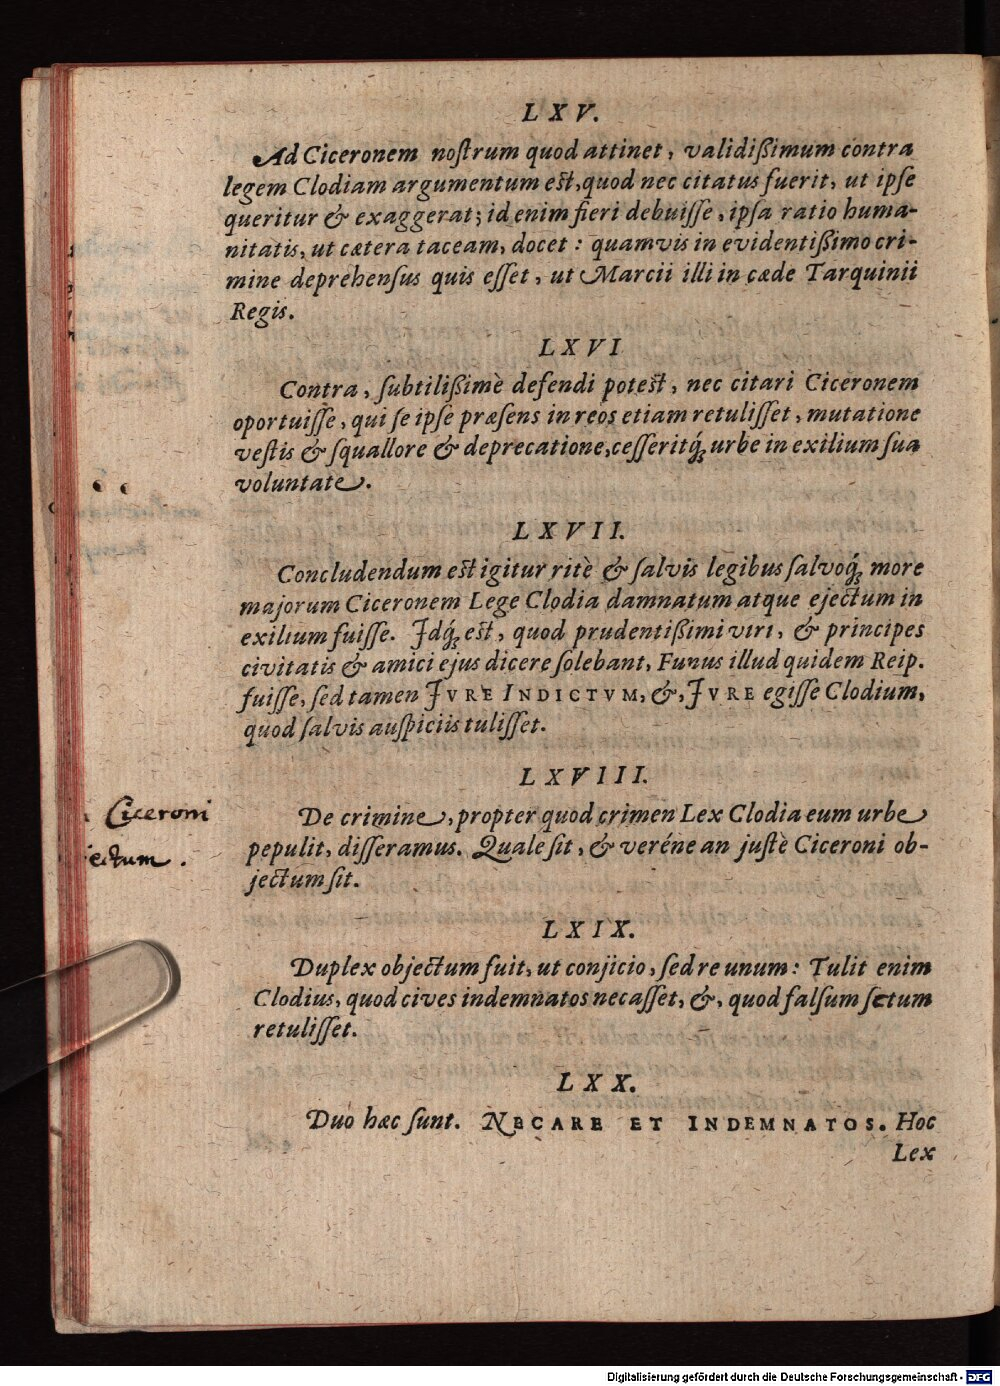 LXV.
Ad Ciceronem nostrum quod attinet, validißimum contra
legem Clodiam argumentum est, quod nec citatus fuerit, ut ipse
queritur & exaggerat; id enim fieri debuisse, ipsa ratio huma-
nitatis, ut cætera taceam, docet: quamvis in evidentißimo cri-
mine deprehensus quis esset, ut Marcii illi in cæde Tarquinii
Regis.
LXVI
Contra, subtilißimè defendi potest, nec citari Ciceronem
oportuisse, qui se ipse præsens in reos etiam retulisset, mutatione
vestis & squallore & deprecatione, cesseritq́ꝫ urbe in exilium sua
voluntate.
LXVII.
Concludendum est igitur ritè & salvis legibus salvoq́ꝫ more
majorum Ciceronem Lege Clodia damnatum atque ejectum in
exilium fuisse. Idq́ꝫ est, quod prudentißimi viri, & principes
civitatis & amici ejus dicere solebant, Funus illud quidem Reip.
fuisse, sed tamen JVRE INDICTVM, &, JVRE egisse Clodium,
quod salvis auspiciis tulisset.
LXVIII.
De crimine, propter quod crimen Lex Clodia eum urbe
Ciceroni
pepulit, disseramus. Quale sit, & veréne an justè Ciceroni ob-
jectum.
jectum sit.
LXIX.
Duplex objectum fuit, ut conjicio, sed re unum: Tulit enim
Clodius, quod cives indemnatos necasset, &, quod falsum sctum
retulisset.
LXX.
Duo hæc sunt. NECARE ET INDEMNATOS. Hoc
Lex
Digitalisierung gefördert durch die Deutsche Forschungsgemeinschaft - DFG